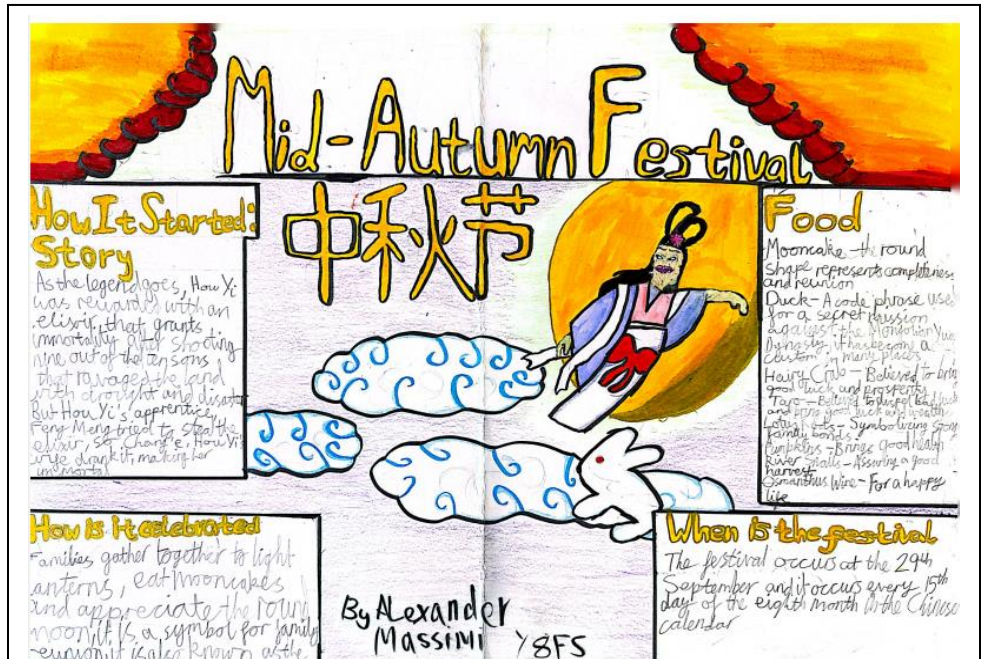 Mid-Autumn Festival
中秋节
How It Started:
Story
As the legend goes, How Yi
was rewarded with an
elixir that grants
immortality after shooting
nine out of the ten sons
that ravaged the land
with drought and disaster
But Hou Yi's apprentice,
Feng Meng tried to steal the
elixir, so Chang'e, How Yi's
wife drank it, making her
immortal
Food
Mooncake - the round
shape represents completeness
and reunion
Duck - A code phrase used
for a secret mission
against the Mongolian Yuan
Dynasty, it has become a
custom in many places
Hairy Crab - Believed to bring
good luck and prosperity
Taro - Believed to dispel bad luck
and bring good luck and wealth
Lotus Roots - Symbolizing strong
family bonds
Pumpkins - Brings good health
River Snails - Assuring a good
harvest
Osmanthus Wine - For a happy
life
How is it celebrated
Families gather together to light
lanterns, eat mooncakes
and appreciate the round
moon, it is a symbol for family
reunion it is also known as the
When is the festival
The festival occurs at the 29th
September and it occurs every 15th
day of the eighth month in the Chinese
calendar
By Alexander
Massimi Y8FS